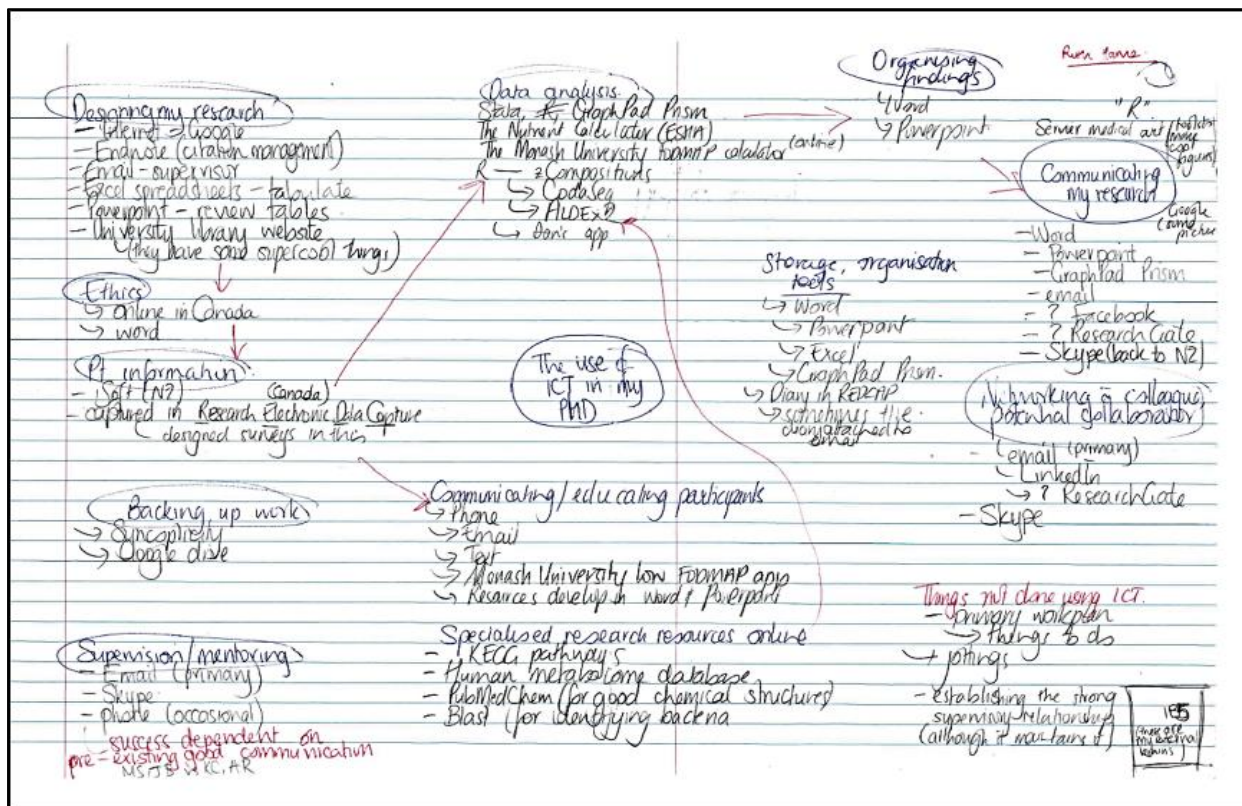 Designing my research
- Internet → Google
- Endnote (citation management)
- Email - supervisor
- Excel spreadsheets - tabulate
- Powerpoint - review tables
- University library website
(they have some supercool things)
Ethics
↳ online in Canada
↳ word
Pt information
- iSoft (NZ) (Canada)
- captured in Research Electronic Data Capture
designed surveys in this
Backing up work
↳ Syncoplicity
↳ Google drive
Supervision/mentoring
- Email (primary)
- Skype
- phone (occasional)
success dependent on
pre-existing good communication
MS, JB KC, AR
Data analysis
Stata, GraphPad Prism
The Nutrient Calculator (ESHA)
The Monash University FODMAP calculator (online)
R - Compositions
↳ CodaSeq
↳ ALDEx2
↳ Dan's app
The use of
ICT in my
PhD
Communicating/educating participants
↳ Phone
↳ Email
↳ Text
↳ Monash University low FODMAP app
↳ Resources develop in word & Powerpoint
Specialised research resources online
- KEGG pathways
- Human metabolome database
- PubMedChem (for good chemical structures)
- Blast (for identifying bacteria
Organising
findings
↳ Word
↳ Powerpoint
Storage, organisation
tools
↳ Word
↳ Powerpoint
↳ Excel
↳ GraphPad Prism.
↳ Diary in REDCAP
↳ sometimes the
attached to
email
"R"
Servier medical art
make
cool
figures)
Communicating
my research
Google
(some
picture
- Word
- Powerpoint
- GraphPad Prism
- email
- ? Facebook
- ? ResearchGate
- Skype (back to NZ)
Networking c colleagues
potential collaborator
email (primary)
- LinkedIn
→ ? ResearchGate
- Skype
Things not done using ICT.
- primary workplan
→ things to do
→ jottings
- establishing the strong
supervisory relationship
(although it maintains it)
(these are
my external